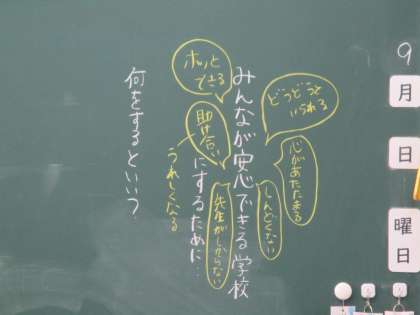 9
月
日
曜
日
みんなが安心できる学校
にするために…
何をするといい?
ホッと
できる
どうどうと
いられる
助け合い
うれしくなる
心があたたまる
しんどくない
先生がしからない